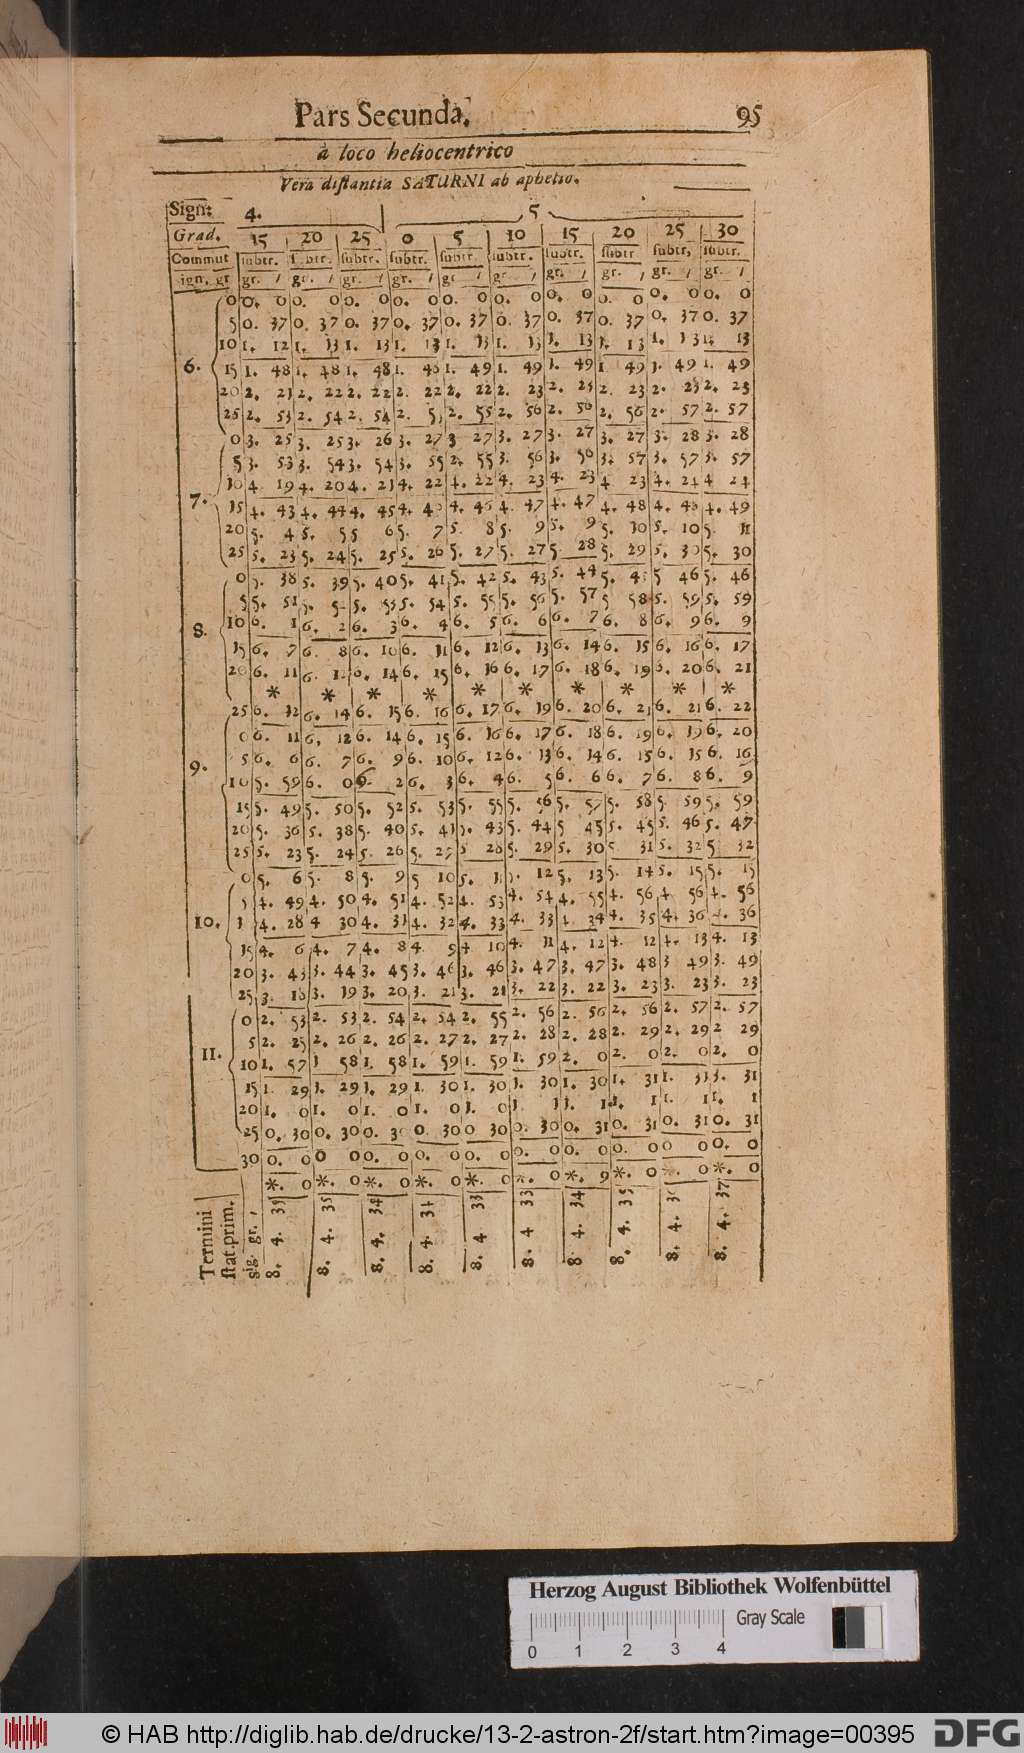 Pars Secunda. 95
à loco heliocentrico
Vera distantia SATURNI ab aphelio.
Sign: 4. 5
Grad. 15 20 25 0 5 10 15 20 25 30
Commut subtr. subtr. subtr. subtr. subtr. subtr. subtr. subtr subtr, subtr.
sign. gr gr. / gr. / gr. / gr. / gr / gr / gr. / gr. / gr. / gr. /
6. 0 0. 0 0. 0 0. 0 0. 0 0. 0 0. 0 0. 0 0. 0 0. 0 0. 0
5 0. 37 0. 37 0. 37 0. 37 0. 37 0. 37 0. 37 0. 37 0. 37 0. 37
10 1. 12 1. 13 1. 13 1. 13 1. 13 1. 13 1. 13 1. 13 1. 13 1. 13
15 1. 48 1. 48 1. 48 1. 48 1. 49 1. 49 1. 49 1 49 1. 49 1. 49
20 2. 21 2. 22 2. 22 2. 22 2. 22 2. 23 2. 23 2. 23 2. 23 2. 23
25 2. 53 2. 54 2. 54 2. 2. 55 2. 56 2. 56 2. 56 2. 57 2. 57
7. 0 3. 25 3. 25 3. 26 3. 27 3 27 3. 27 3. 27 3. 27 3. 28 3. 28
5 3. 53 3. 54 3. 54 3. 55 2. 55 3. 56 3. 56 3. 57 3. 57 3. 57
10 4. 19 4. 20 4. 21 4. 22 4. 22 4. 23 4. 23 4 23 4. 24 4 24
15 4. 43 4. 44 4. 45 4. 4. 46 4. 47 4. 47 4. 48 4. 48 4. 49
20 5. 4 5. 5 5 6 5. 7 5. 8 5. 9 5. 9 5. 10 5. 10 5. 11
25 5. 23 5. 24 5. 25 5. 26 5. 27 5. 27 5. 28 5. 29 5. 30 5. 30
8. 0 5. 38 5. 39 5. 40 5. 41 5. 42 5. 43 5. 44 5. 45 5 46 5. 46
5 5. 51 5. 52 5. 53 5. 54 5. 55 5. 56 5. 57 5 58 5. 59 5. 59
10 6. 1 6. 2 6. 3 6. 4 6. 5 6. 6 6. 7 6. 8 6. 9 6. 9
15 6. 7 6. 8 6. 10 6. 11 6. 12 6. 13 6. 14 6. 15 6. 16 6. 17
20 6. 11 6. 12 6. 14 6. 15 6. 16 6. 17 6. 18 6. 19 6. 20 6. 21
* * * * * * * * * *
25 6. 12 6. 14 6. 15 6. 16 6. 17 6. 19 6. 20 6. 21 6. 21 6. 22
9. 0 6. 11 6. 12 6. 14 6. 15 6. 16 6. 17 6. 18 6. 19 6. 19 6. 20
5 6. 6 6. 7 6. 9 6. 10 6. 12 6. 13 6. 14 6. 15 6. 15 6. 16
10 5. 59 6. 0 6. 2 6. 3 6. 4 6. 5 6. 6 6. 7 6. 8 6. 9
15 5. 49 5. 50 5. 52 5. 53 5. 55 5. 56 5. 57 5. 58 5. 59 5. 59
20 5. 36 5. 38 5. 40 5. 41 5. 43 5. 44 5 45 5. 45 5. 46 5. 47
25 5. 23 5. 24 5. 26 5. 27 5 28 5. 29 5. 30 5 31 5. 32 5 32
10. 0 5. 6 5. 8 5. 9 5 10 5. 11 5. 12 5. 13 5. 14 5. 15 5. 15
5 4. 49 4. 50 4. 51 4. 52 4. 53 4. 54 4. 55 4. 56 4. 56 4. 56
4. 28 4 30 4. 31 4. 32 4. 33 4. 33 4. 34 4. 35 4. 36 4. 36
15 4. 6 4. 7 4. 8 4. 9 4 10 4. 11 4. 12 4. 12 4. 13 4. 13
20 3. 43 3. 44 3. 45 3. 46 3. 46 3. 47 3. 47 3. 48 3 49 3. 49
25 3. 18 3. 19 3. 20 3. 21 3. 21 3. 22 3. 22 3. 23 3. 23 3. 23
11. 0 2. 53 2. 53 2. 54 2. 54 2. 55 2. 56 2. 56 2. 56 2. 57 2. 57
5 2. 25 2. 26 2. 26 2. 27 2. 27 2. 28 2. 28 2. 29 2. 29 2 29
10 1. 57 1 58 1. 58 1. 59 1. 59 1. 59 2. 0 2. 0 2. 0 2. 0
15 1. 29 1. 29 1. 29 1. 30 1. 30 1. 30 1. 30 1. 31 1. 31 1. 31
20 1. 0 1. 0 1. 0 1. 0 1. 0 1 1 1. 1 1. 1 1. 1 1. 1
25 0. 30 0. 30 0. 30 0. 30 0 30 0. 30 0. 31 0. 31 0. 31 0. 31
30 0. 0 0 0 0. 0 0. 0 0. 0 0. 0 0. 0 0. 0 0 0 0. 0
*. 0 *. 0 *. 0 *. 0 *. 0 *. 0 *. 9 *. 0 *. 0 *. 0
Termini
stat.prim.
sig. gr. /
8. 4. 35
8. 4. 35
8. 4. 34
8. 4. 34
8. 4 33
8. 4 33
8 4. 34
8. 4. 35
8. 4.
8. 4. 37
Herzog August Bibliothek Wolfenbüttel
Gray Scale
0 1 2 3 4
© HAB http://diglib.hab.de/drucke/13-2-astron-2f/start.htm?image=00395
DFG